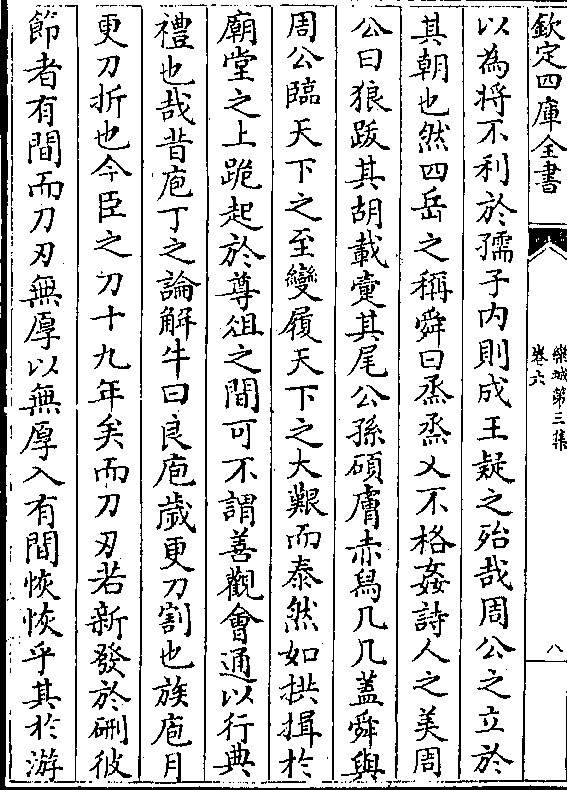 欽定四庫全書
欒城第三集
卷六
八
以為將不利於孺子内則成王疑之殆哉周公之立於
其朝也然四岳之稱舜曰烝烝乂不格姦詩人之美周
公曰狼跋其胡載疐其尾公孫碩膚赤舄几几蓋舜與
周公臨天下之至變履天下之大艱而泰然如拱揖於
廟堂之上跪起於尊俎之間可不謂善觀會通以行典
禮也哉昔庖丁之論解牛曰良庖歲更刀割也族庖月
更刀折也今臣之刀十九年矣而刀刃若新發於硎彼
節者有間而刀刃無厚以無厚入有間恢恢乎其於游